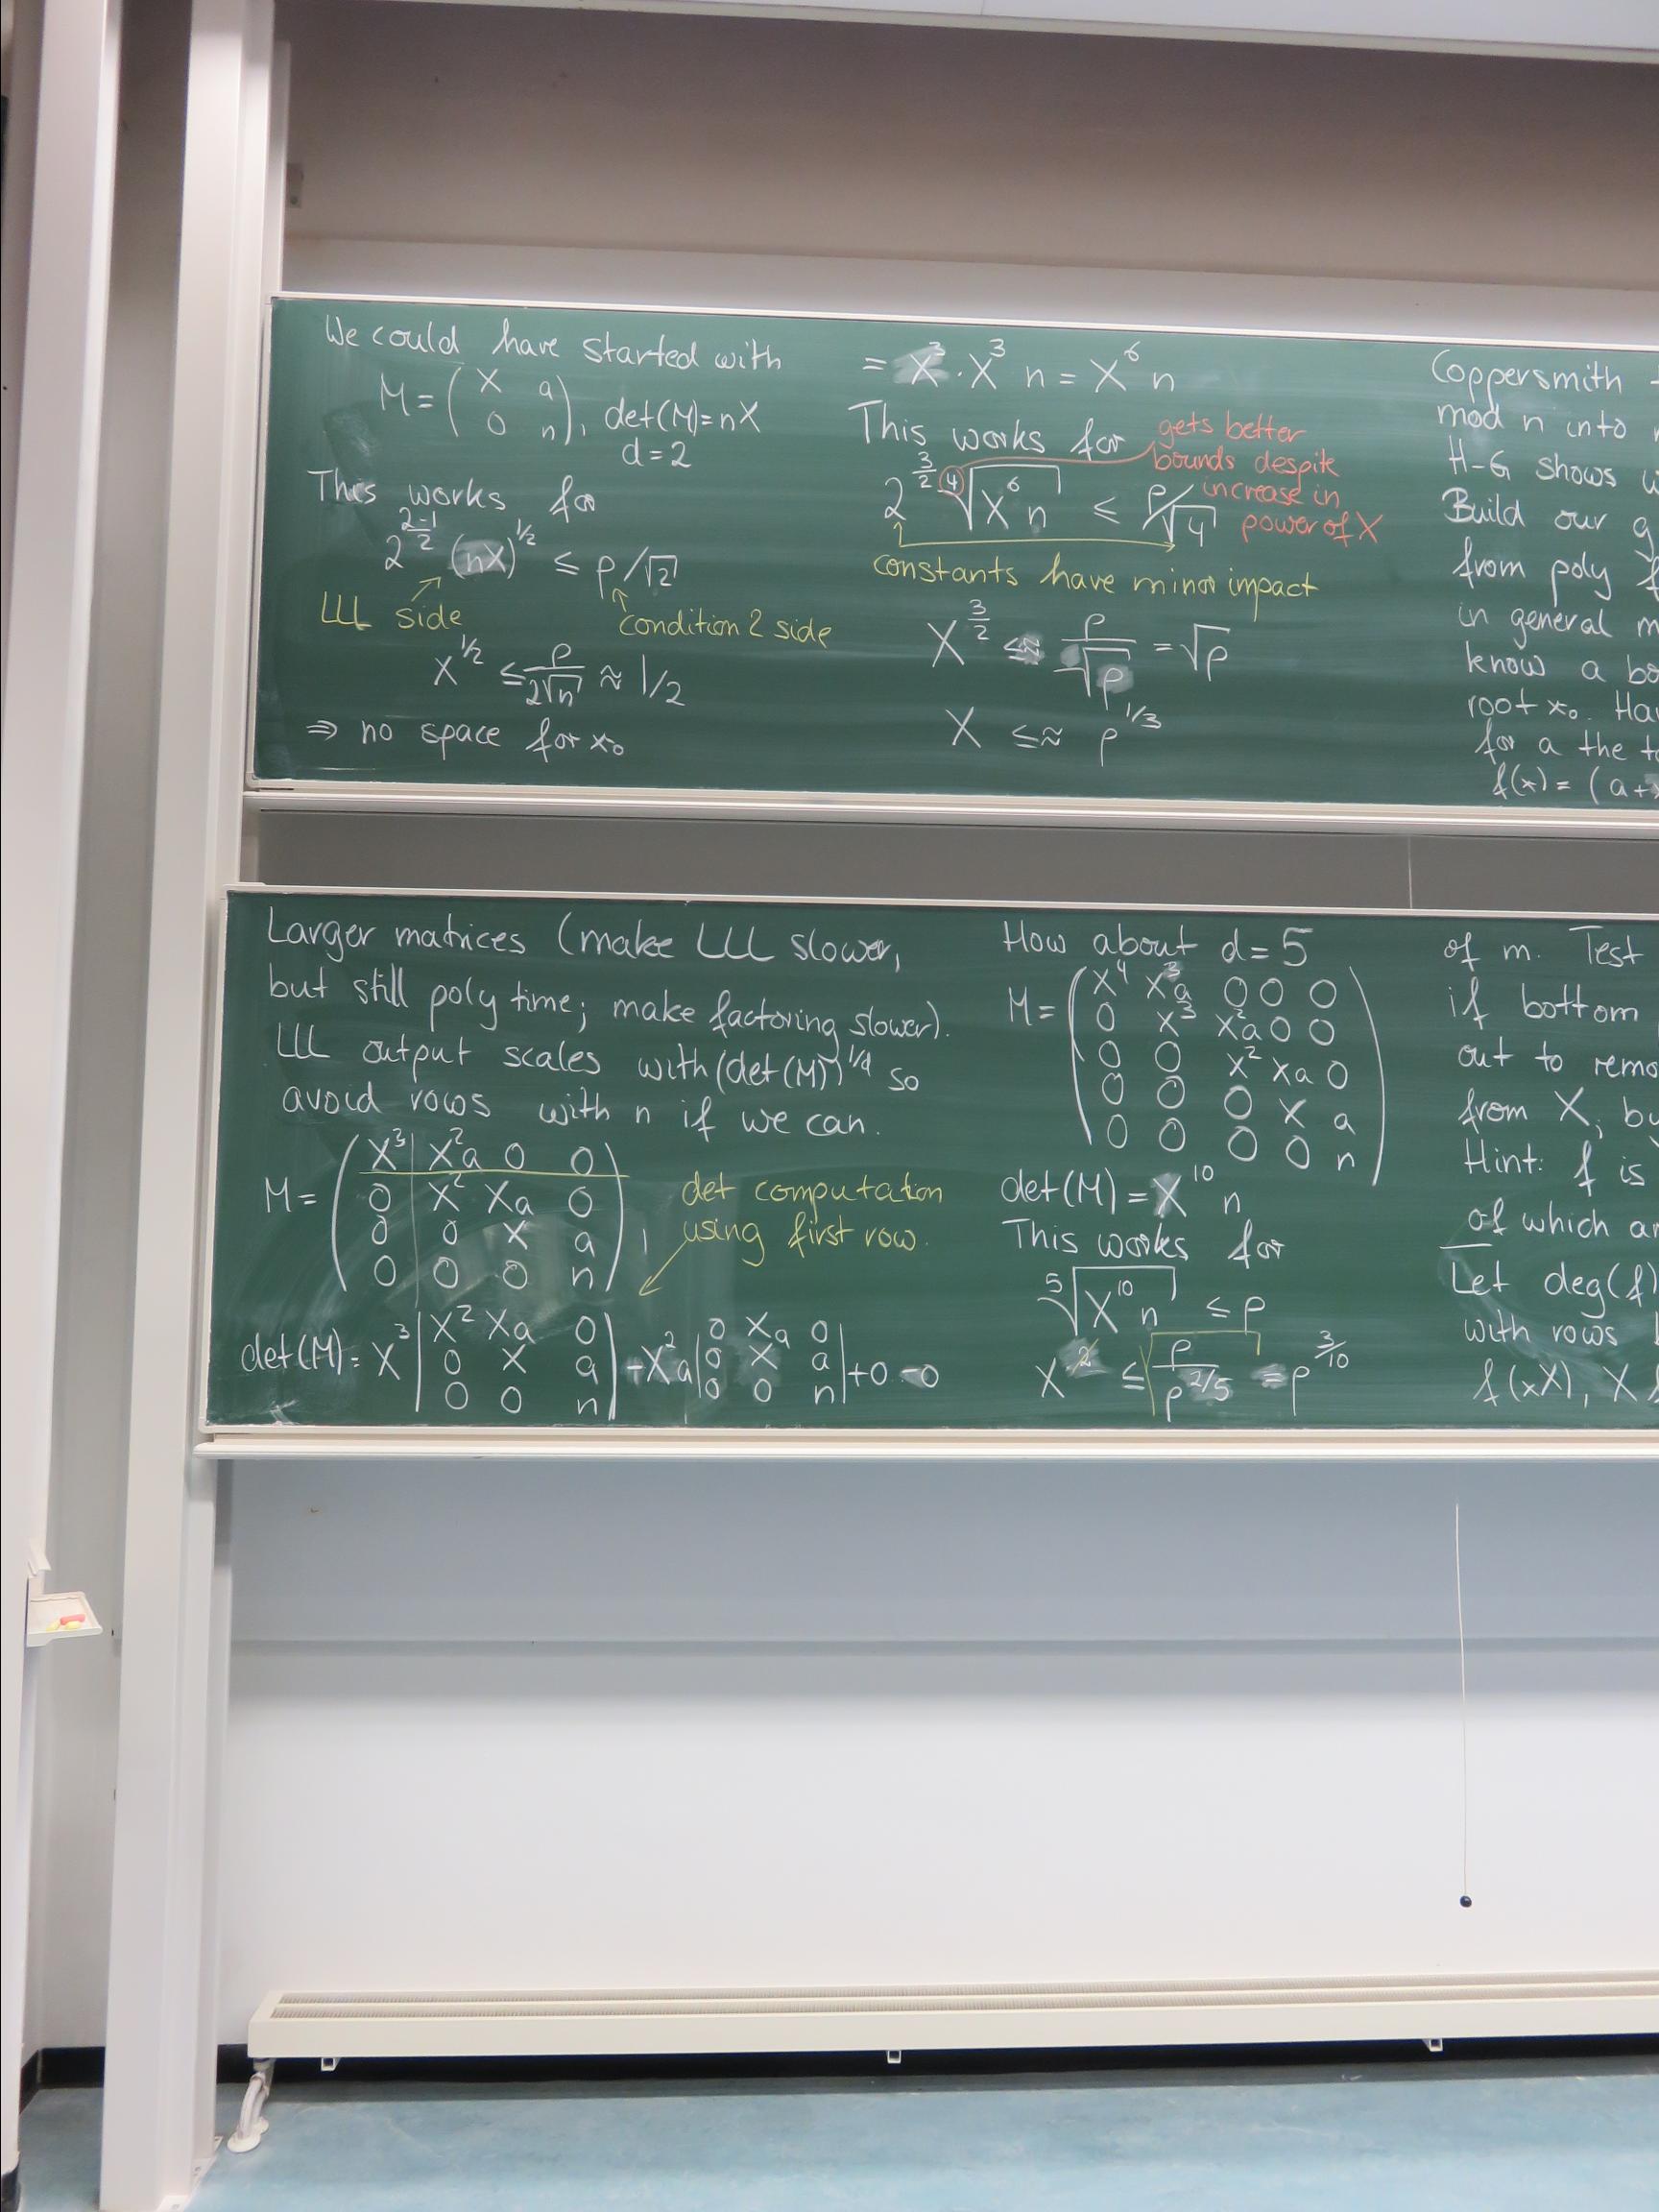 We could have started with
M = ( X a
0 n ), det(M) = nX
d = 2
This works for
2^{(2-1)/2} (nX)^{1/2} ≤ p/√2
LLL side
condition 2 side
X^{1/2} ≤ p/(2√n) ≈ 1/2
⇒ no space for x₀
= X³ · X³ n = X⁶ n
This works for
gets better
bounds despite
increase in
power of X
2^{3/2} ⁴√(X⁶n) ≤ p/√4
constants have minor impact
X^{3/2} ≤≈ p/√p = √p
X ≤≈ p^{1/3}
Coppersmith
mod n into
H-G shows
Build our g
from poly
in general
know a
root x₀.
for a the
f(x) = (a+x
Larger matrices (make LLL slower,
but still poly time; make factoring slower).
LLL output scales with (det(M))^{1/d} so
avoid rows with n if we can.
M = ( X³ X²a 0 0
0 X² Xa 0
0 0 X a
0 0 0 n ),
det computation
using first row.
det(M) = X³ | X² Xa 0 | - X²a | 0 Xa 0 | + 0 - 0
| 0 X a | | 0 X a |
| 0 0 n | | 0 0 n |
How about d = 5
M = ( X⁴ X³a 0 0 0
0 X³ X²a 0 0
0 0 X² Xa 0
0 0 0 X a
0 0 0 0 n )
det(M) = X¹⁰ n
This works for
⁵√(X¹⁰n) ≤ p
X² ≤ √(p/p^{2/5}) = p^{3/10}
of m. Test
if bottom
out to remo
from X, bu
Hint: f is
of which ar
Let deg(f)
with rows
f(xX), X